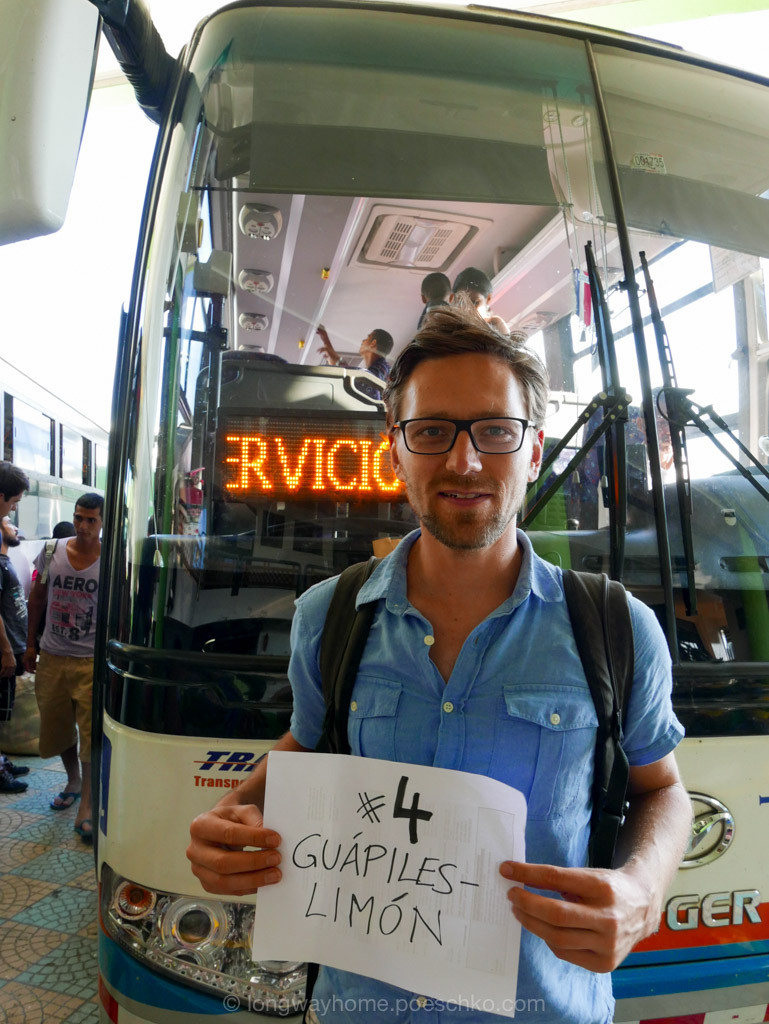 ERVICIO
AERO
TRA
Transpo
#4
GUÁPILES-
LIMÓN
GER
© longwayhome.poeschko.com